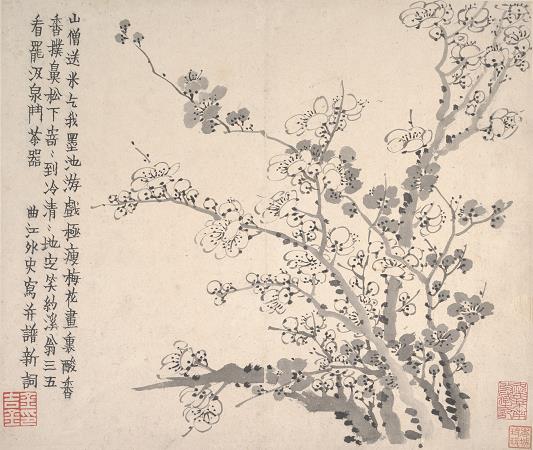 山僧送米乞我墨池游戲極瘦梅花畫裏酸香
香撲鼻松下寄寄到冷清清地定笑約溪翁三五
看罷汲泉鬥茶器
曲江外史寫并譜新詞